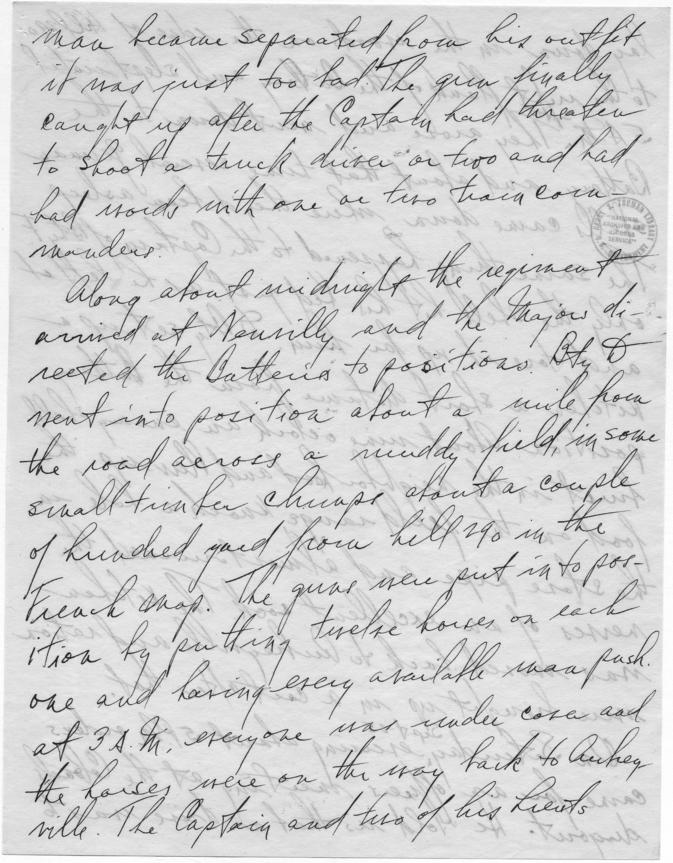 man became separated from his outfit
it was just too bad. The gun finally
caught up after the Captain had threaten
to shoot a truck driver or two and had
had words with one or two train com-
manders.
Along about midnight the regiment
arrived at Neuvilly and the Majors di-
rected the Batteries to positions. Bty D
went into position about a mile from
the road across a muddy field, in some
small timber clumps about a couple
of hundred yard from hill 290 in the
French map. The guns were put into pos-
ition by putting twelve horses on each
one and having every available man push.
at 3 A.M. everyone was under cover and
the horses were on the way back to Aubrey
ville. The Captain and two of his Lieuts
HARRY S. TRUMAN LIBRARY
"NATIONAL
ARCHIVES AND
RECORDS
SERVICE"